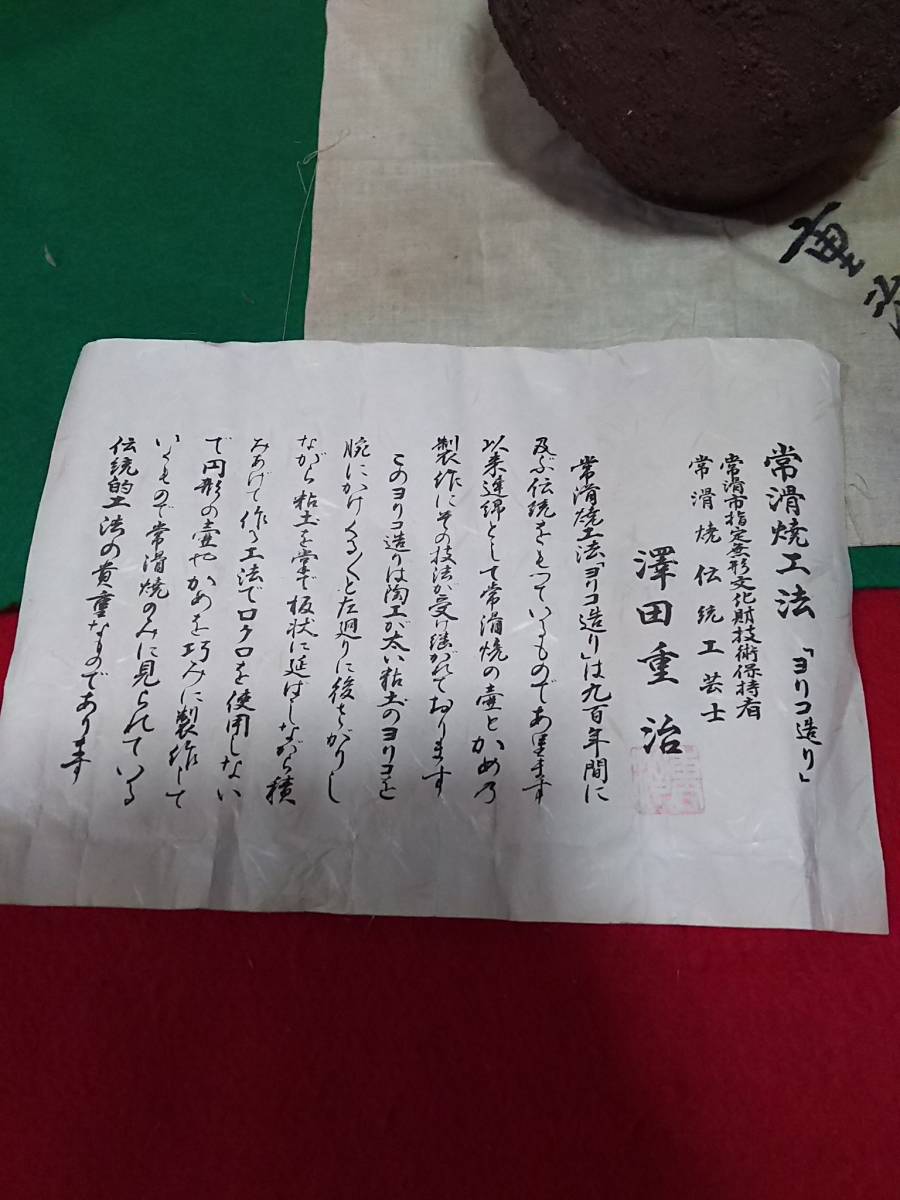 常滑焼工法「ヨリコ造り」
常滑市指定無形文化財技術保持者
常滑焼伝統工芸士
澤田重治
常滑焼工法「ヨリコ造り」は九百年間に
及ぶ伝統をもっているものであります
以来連綿として常滑焼の壷とかめの
製作にその技法が受け継がれております
このヨリコ造りは陶工が太い粘土のヨリコを
腕にかけくるくると左廻りに後ずさりし
ながら粘土を掌で板状に延ばしながら積
みあげて作る工法でロクロを使用しない
で円形の壷やかめを巧みに製作して
いくもので常滑焼のみに見られている
伝統的工法の貴重なものであります
重治